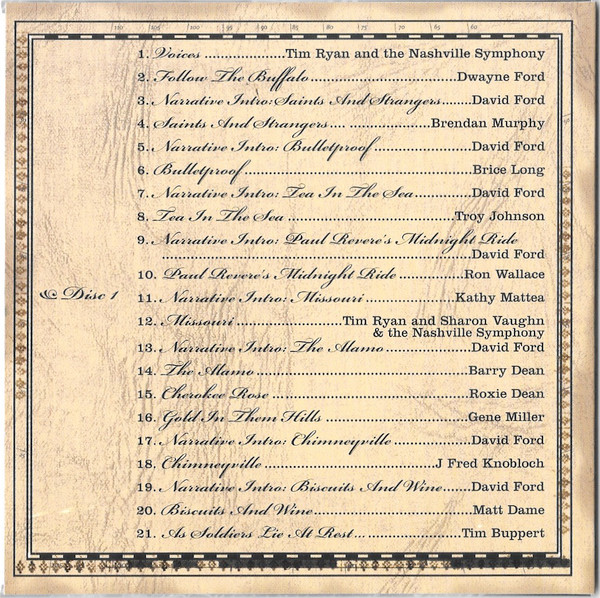 110 105 100 95 90 85 80 75 70 65 60
1. Voices ....................Tim Ryan and the Nashville Symphony
2. Follow The Buffalo....................................Dwayne Ford
3. Narrative Intro: Saints And Strangers.......David Ford
4. Saints And Strangers.... ....................Brendan Murphy
5. Narrative Intro: Bulletproof........................David Ford
6. Bulletproof........................................................Brice Long
7. Narrative Intro: Tea In The Sea..............David Ford
8. Tea In The Sea .........................................Troy Johnson
9. Narrative Intro: Paul Revere's Midnight Ride
..............................................................................David Ford
10. Paul Revere's Midnight Ride ................Ron Wallace
& Disc 1
11. Narrative Intro: Missouri......................Kathy Mattea
12. Missouri..........................Tim Ryan and Sharon Vaughn
& the Nashville Symphony
13. Narrative Intro: The Alamo.....................David Ford
14. The Alamo.....................................................Barry Dean
15. Cherokee Rose ..................................................Roxie Dean
16. Gold In Them Hills ...................................Gene Miller
17. Narrative Intro: Chimneyville ...................David Ford
18. Chimneyville...........................................J Fred Knobloch
19. Narrative Intro: Biscuits And Wine.......David Ford
20. Biscuits And Wine.......................................Matt Dame
21. As Soldiers Lie At Rest... .......................Tim Buppert